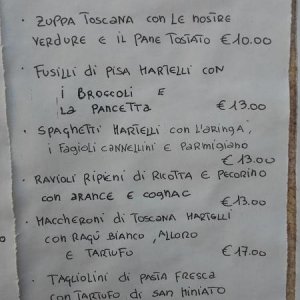 · ZUPPA TOSCANA con LE nostre
VERDURE E il PANE TOSTATO €10.00
· FUSILLI di PISA MARTELLI con
i BROCCOLI E
LA PANCETTA €13.00
· SPAGHETTI MARTELLI con l'aringa,
i FAGIOLI CANNELLINI E PARMIGIANO
€13.00
· RAVIOLI RIPIENI di RICOTTA E PECORINO
con ARANCE E COGNAC €13.00
· MACCHERONI di TOSCANA MARTELLI
con RAGÙ BIANCO, ALLORO
E TARTUFO €17.00
· TAGLIOLINI di PASTA FRESCA
con TARTUFO di SAN MINIATO